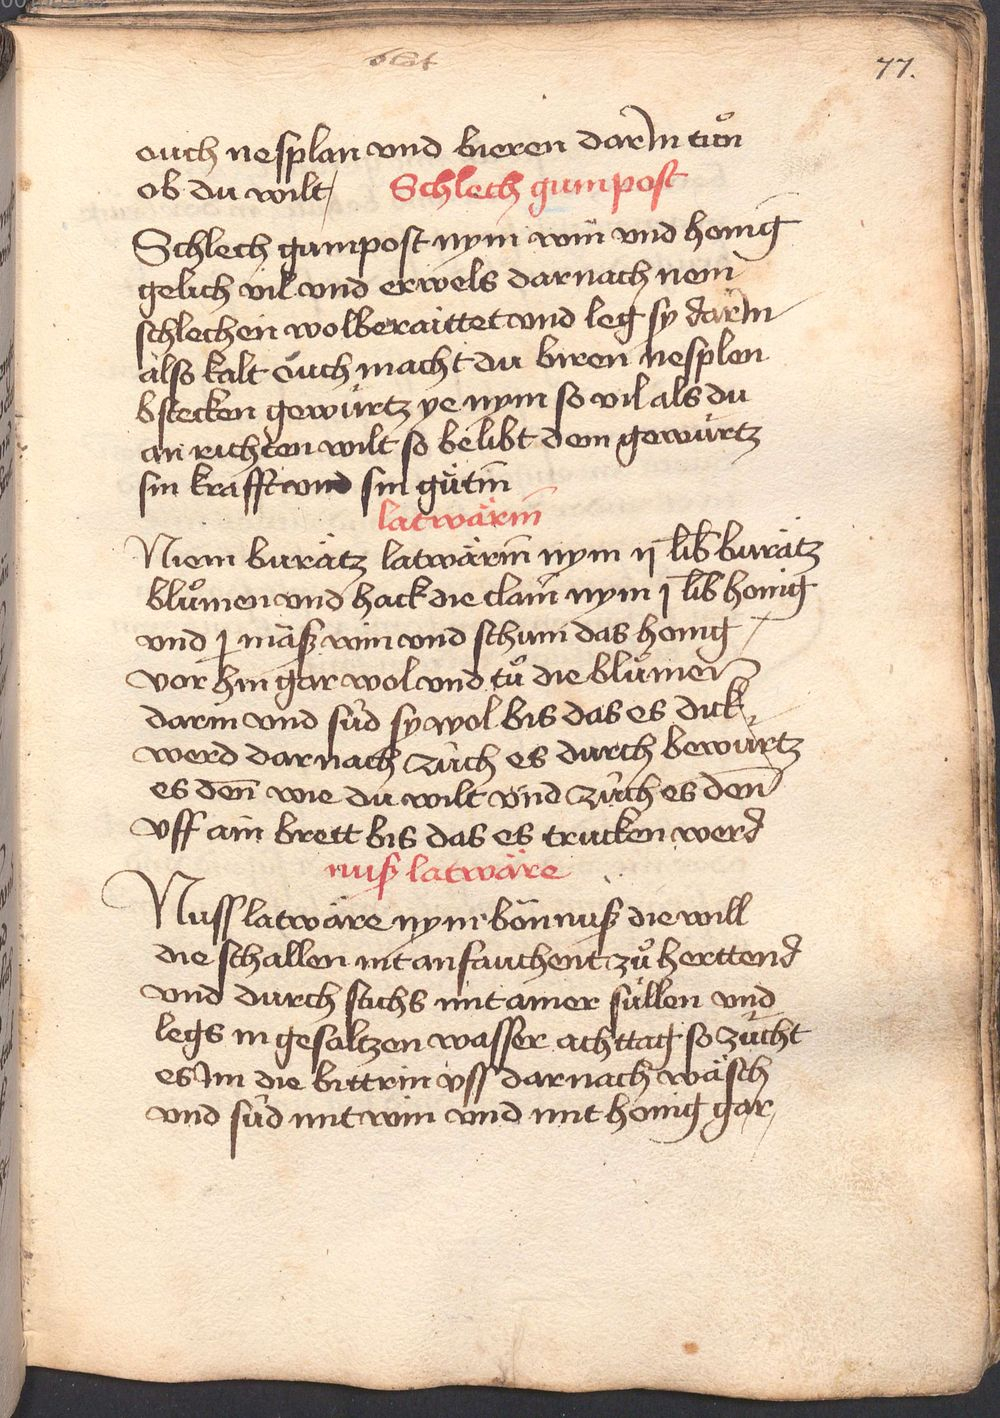 blat
77.
ouch nesplan vnd bieren darin tuͦn
ob du wilt / Schlech gumpost
Schlech gumpost nym win vnd honig
gelich vil vnd erwels darnach nem
schlechen wolberaittet vnd leg sy darin
also kalt ouch macht du biren nesplen
bstecken gewürtz ye nym so vil als du
an richten wilt so belibt dem gewürtz
sin krafft vnd sin gütin̄
latwärin̄
Niem burätz latwärin̄ nym ij lib burätz
bluͦmen vnd hack die clain̄ nym j lib honig
vnd j mäß win vnd schum das honig
vor hin gar wol vnd tuͦ die bluͦmen
darin vnd süd sy wol bis das es dick
werd darnach züch es durch bewürtz
es den̄ wie du wilt vnd züch es den̄
vff ain brett bis das es trucken werd
nuß latwäre
Nuss latwäre nym bömnuß die will
die schallen mt anfauchent zuͦ herttend
vnd durch stichs mit ainer süllen vnd
legs in gesaltzen wasser acht tag so zücht
es im die bittrin vss darnach wäsch
vnd süd mit win vnd mit honig gar